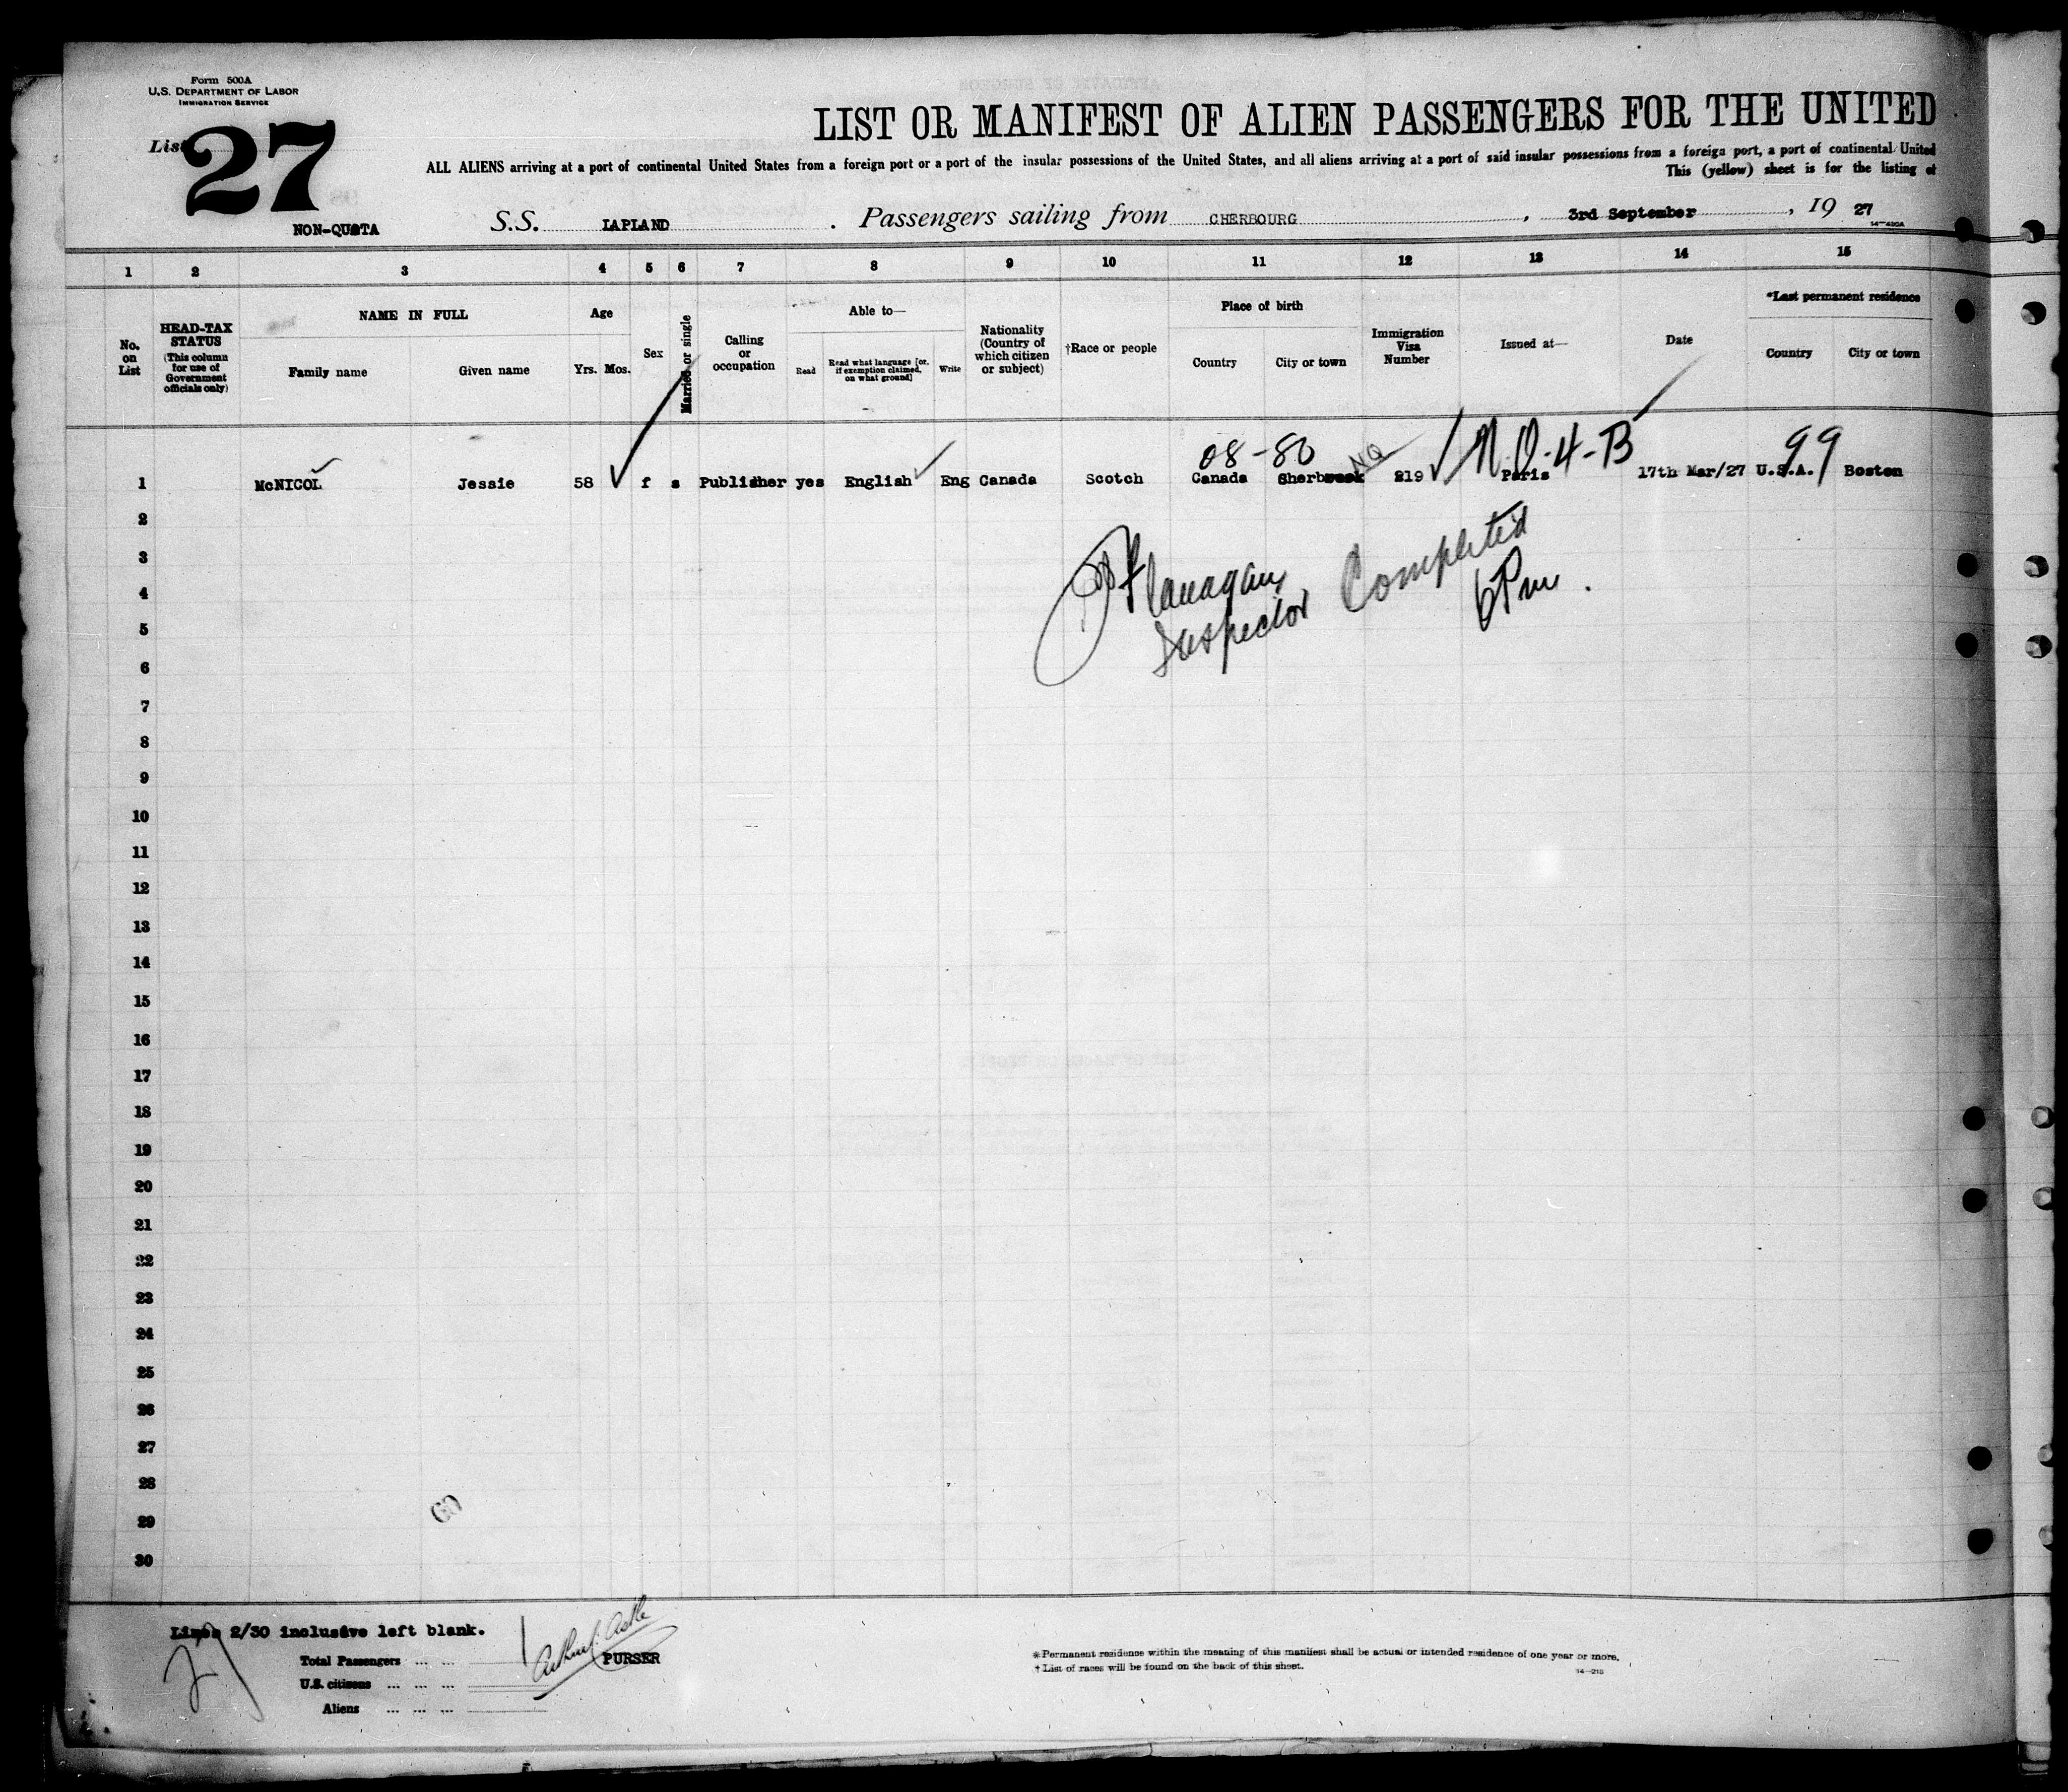 Form 500A
U.S. DEPARTMENT OF LABOR
IMMIGRATION SERVICE
List 27
LIST OR MANIFEST OF ALIEN PASSENGERS FOR THE UNITED
ALL ALIENS arriving at a port of continental United States from a foreign port or a port of the insular possessions of the United States, and all aliens arriving at a port of said insular possessions from a foreign port, a port of continental United
This (yellow) sheet is for the listing of
NON-QUOTA
S.S. LAPLAND. Passengers sailing from CHERBOURG, 3rd September, 19 27
14-430A
1 2 3 4 5 6 7 8 9 10 11 12 13 14 15
No. on List
HEAD-TAX STATUS (This column for use of Government officials only)
NAME IN FULL
Family name Given name
Age
Yrs. Mos.
Sex
Married or single
Calling or occupation
Able to—
Read
Read what language [or, if exemption claimed, on what ground]
Write
Nationality (Country of which citizen or subject)
†Race or people
Place of birth
Country City or town
Immigration Visa Number
Issued at—
Date
*Last permanent residence
Country City or town
08-80 NQ N.Q.-4-B 99
1 McNICOL Jessie 58 f s Publisher yes English Eng Canada Scotch Canada Sherbrook 219 Paris 17th Mar/27 U.S.A. Boston
2
3
4
5
6
7
8
9
10
11
12
13
14
15
16
17
18
19
20
21
22
23
24
25
26
27
28
29
30
Flanagan
Inspector
Completed
6 Pm.
Lines 2/30 inclusive left blank.
27
Total Passengers ... ... 1
U.S. citizens ... ... ...
Aliens ... ... ...
Arthur Astle
PURSER
* Permanent residence within the meaning of this manifest shall be actual or intended residence of one year or more.
† List of races will be found on the back of this sheet.
14-213